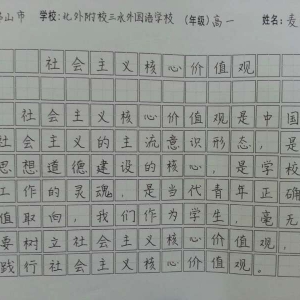 山市 学校:北外附校三水外国语学校 (年级)高一 姓名:麦
社会主义核心价值观
社会主义核心价值观是中国
社会主义的主流意识形态,是
思想道德建设的核心,是学校
工作的灵魂,是当代青年正确
值取向,我们作为学生,毫无
要树立社会主义核心价值观,
践行社会主义核心价值观。